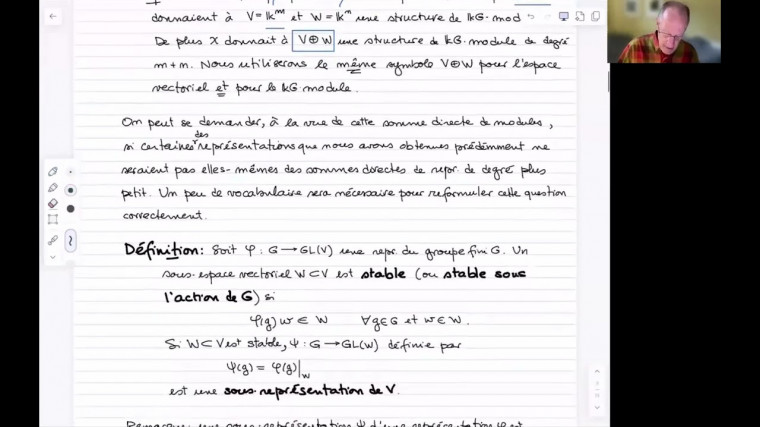 donnaient à V = 𝕜ᵐ et W = 𝕜ⁿ une structure de 𝕜G-mod
De plus χ donnait à V⊕W une structure de 𝕜G-module de degré
m+n. Nous utiliserons le même symbole V⊕W pour l'espace
vectoriel et pour le 𝕜G module.
On peut se demander, à la vue de cette somme directe de modules,
si certaines des représentations que nous avons obtenues précédemment ne
seraient pas elles-mêmes des sommes directes de repr. de degré plus
petit. Un peu de vocabulaire sera nécessaire pour reformuler cette question
correctement.
Définition: Soit φ : G → GL(V) une repr. du groupe fini G. Un
sous-espace vectoriel W⊂V est stable (ou stable sous
l'action de G) si
φ(g)w ∈ W ∀g∈G et w∈W.
Si W⊂V est stable, ψ : G → GL(W) définie par
ψ(g) = φ(g)|_W
est une sous-représentation de V.
Remarque: une sous-représentation ψ d'une représentation φ est